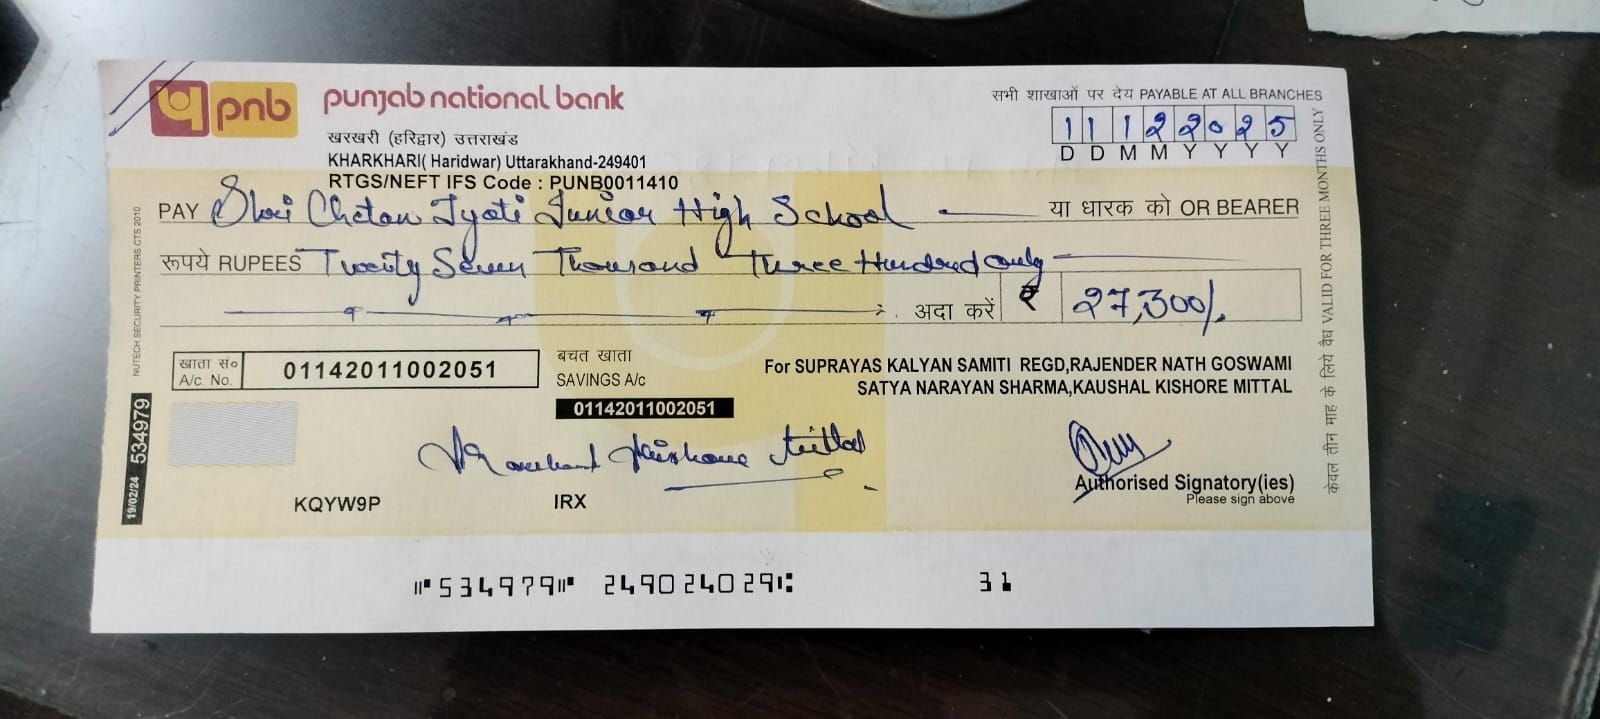 pnb punjab national bank
सभी शाखाओं पर देय PAYABLE AT ALL BRANCHES
खरखरी (हरिद्वार) उत्तराखंड
KHARKHARI( Haridwar) Uttarakhand-249401
RTGS/NEFT IFS Code : PUNB0011410
1 1 1 2 2 0 2 5
D D M M Y Y Y Y
PAY Shri Chetan Jyoti Junior High School या धारक को OR BEARER
रूपये RUPEES Twenty Seven Thousand Three Hundred only
अदा करें ₹ 27,300/.
खाता सं० A/c. No. 01142011002051
बचत खाता
SAVINGS A/c
01142011002051
For SUPRAYAS KALYAN SAMITI REGD,RAJENDER NATH GOSWAMI
SATYA NARAYAN SHARMA,KAUSHAL KISHORE MITTAL
Kishore Mittal
Authorised Signatory(ies)
Please sign above
KQYW9P IRX
⑈534979⑈ 249024029⑆ 31
NUTECH SECURITY PRINTERS CTS 2010
19/02/24 534979
केवल तीन माह के लिये वैध VALID FOR THREE MONTHS ONLY